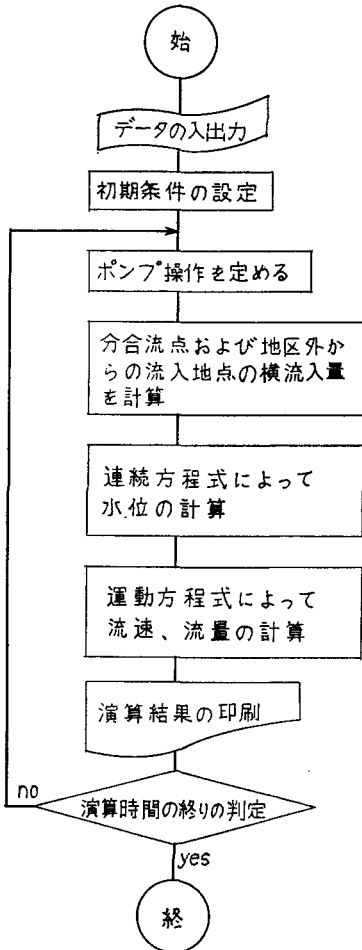 始
データの入出力
初期条件の設定
ポンプ操作を定める
分合流点および地区外か
らの流入地点の横流入量
を計算
連続方程式によって
水位の計算
運動方程式によって
流速、流量の計算
演算結果の印刷
no
演算時間の終りの判定
yes
終